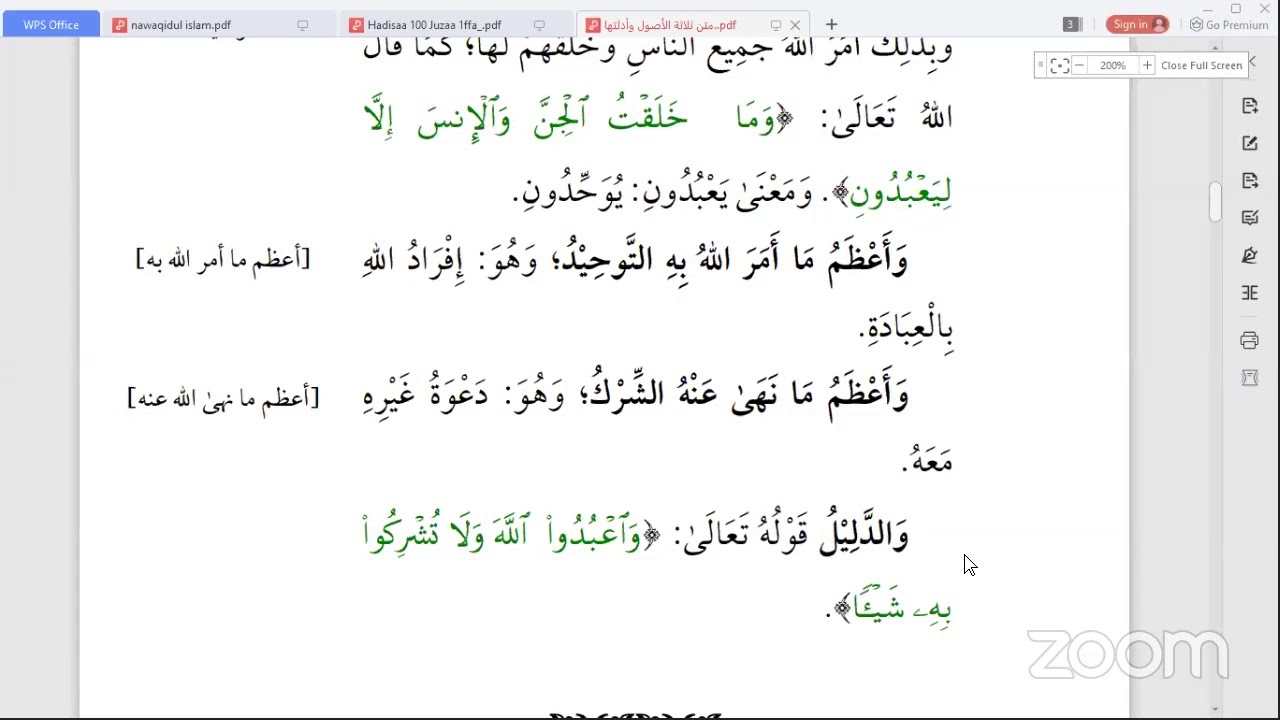 WPS Office
nawaqidul islam.pdf
Hadisaa 100 Juzaa 1ffa_.pdf
متن ثلاثة الأصول وأدلتها..pdf
3
Sign in
Go Premium
200%
Close Full Screen
وَبِذَلِكَ أَمَرَ اللهُ جَمِيعَ النَّاسِ وَخَلَقَهُمْ لَهَا؛ كَمَا قَالَ
اللهُ تَعَالَىٰ: ﴿وَمَا خَلَقْتُ ٱلْجِنَّ وَٱلْإِنسَ إِلَّا
لِيَعْبُدُونِ﴾. وَمَعْنَىٰ يَعْبُدُونِ: يُوَحِّدُونِ.
وَأَعْظَمُ مَا أَمَرَ اللهُ بِهِ التَّوحِيْدُ؛ وَهُوَ: إِفْرَادُ اللهِ
[أعظم ما أمر الله به]
بِالْعِبَادَةِ.
وَأَعْظَمُ مَا نَهَىٰ عَنْهُ الشِّرْكُ؛ وَهُوَ: دَعْوَةُ غَيْرِهِ
[أعظم ما نهىٰ الله عنه]
مَعَهُ.
وَالدَّلِيْلُ قَوْلُهُ تَعَالَىٰ: ﴿وَٱعْبُدُوا۟ ٱللَّهَ وَلَا تُشْرِكُوا۟
بِهِۦ شَيْـًٔا﴾.
zoom